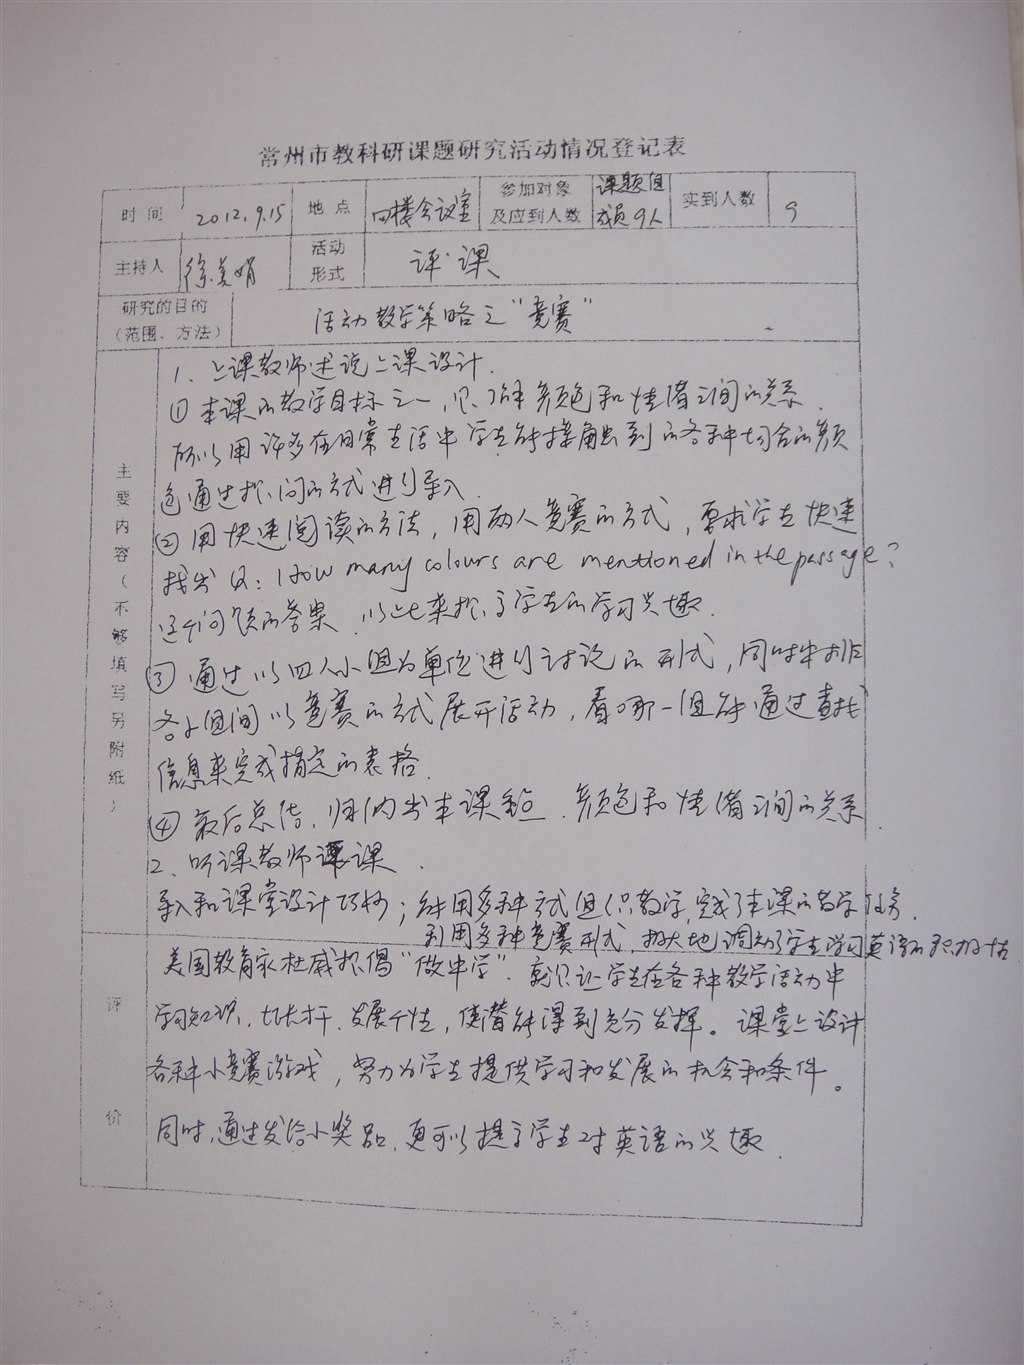 常州市教科研课题研究活动情况登记表
时间 2012.9.15 地点 四楼会议室 参加对象及应到人数 课题组成员9人 实到人数 9
主持人 徐美娟 活动形式 评课
研究的目的（范围、方法） 活动教学策略之“竞赛”
主要内容（不够填写另附纸）
1、上课教师述说上课设计.
① 本课的教学目标之一，是了解颜色和情绪之间的关系.
所以用许多在日常生活中学生能接触到的各种场合的颜
色通过提问的方式进行导入.
② 用快速阅读的方法，用两人竞赛的方式，要求学生快速
找出Q: How many colours are mentioned in the passage?
这个问题的答案，以此来提高学生的学习兴趣.
③ 通过以四人小组为单位进行讨论的形式，同时安排
各小组间以竞赛的方式展开活动，看哪一组能通过查找
信息来完成指定的表格.
④ 最后总结，归纳出本课重点.颜色和情绪之间的关系.
2、听课教师评课.
导入和课堂设计巧妙；能用多种方式组织教学,完成了本课的教学任务.
利用多种竞赛形式，极大地调动了学生学习英语的积极性
评价
美国教育家杜威提倡“做中学”.就是让学生在各种教学活动中
学习知识，增长才干、发展个性，使潜能得到充分发挥。课堂上设计
各种小竞赛游戏，努力为学生提供学习和发展的机会和条件。
同时，通过发给小奖品，更可以提高学生对英语的兴趣.